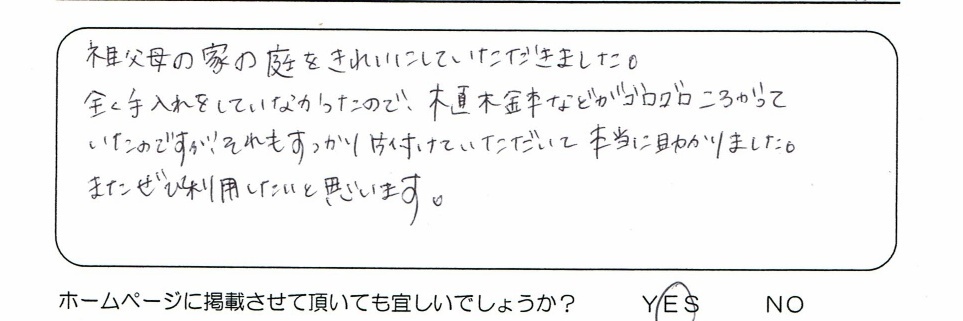 祖父母の家の庭をきれいにしていただきました。
全く手入れをしていなかったので、植木金本などがゴロゴロころがって
いたのですが、それもすっかり片付けていただいて本当に助かりました。
またぜひ利用したいと思います。
ホームページに掲載させて頂いても宜しいでしょうか? YES NO